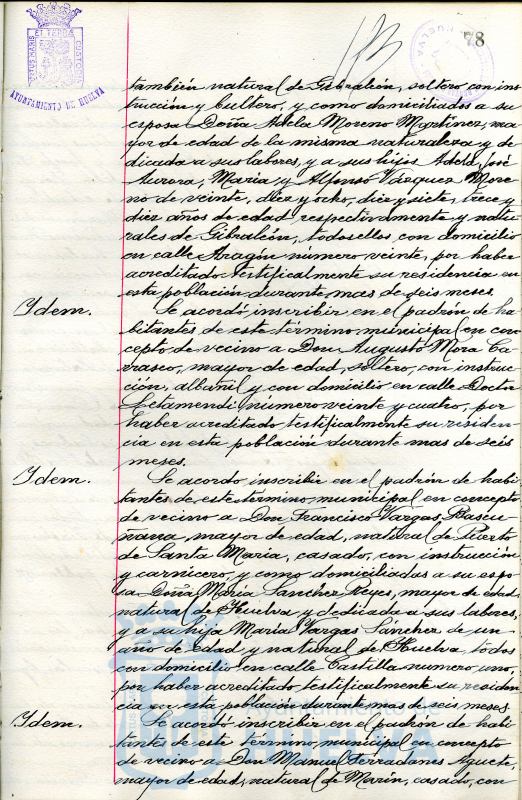 78
AYUNTAMIENTO DE HUELVA
también natural de Gibraleón, soltero con ins
trucción y Cultero, y como domiciliados a su
esposa Doña Adela Moreno Martínez, ma
yor de edad de la misma naturaleza y de
dicada a sus labores, y a sus hijos Adela, José
Aurora, Maria y Alfonso Vázquez More
no de veinte, diez y ocho, diez y siete, trece y
diez años de edad respectivamente y natu
rales de Gibraleón, todos ellos con domicilio
en calle Aragón número veinte, por haber
acreditado testificalmente su residencia en
esta población durante mas de seis meses.
Idem. Se acordó inscribir en el padrón de ha
bitantes de este término municipal en con
cepto de vecino a Don Augusto Mora Ca
rrasco, mayor de edad, soltero, con instruc
ción, albañil y con domicilio en calle Doctor
Letamendi número veinte y cuatro, por
haber acreditado testificalmente su residen
cia en esta población durante mas de seis
meses.
Idem. Se acordo inscribir en el padrón de habi
tantes de este término municipal en concepto
de vecino a Don Francisco Vargas Bascu
nana mayor de edad, natural de Puerto
de Santa Maria, casado, con instrucción
y carnicero, y como domiciliadas a su espo
sa Doña Maria Sanchez Reyes, mayor de edad
natural de Huelva y dedicada a sus labores,
y a su hija Maria Vargas Sánchez de un
año de edad y natural de Huelva, todos
con domicilio en calle Castilla numero uno,
por haber acreditado testificalmente su residen
cia en esta población durante mas de seis meses.
Idem. Se acordó inscribir en el padrón de habi
tantes de este término municipal en concepto
de vecino a Don Manuel Ferradanes Aguete,
mayor de edad, natural de Marín, casado, con
HUELVA